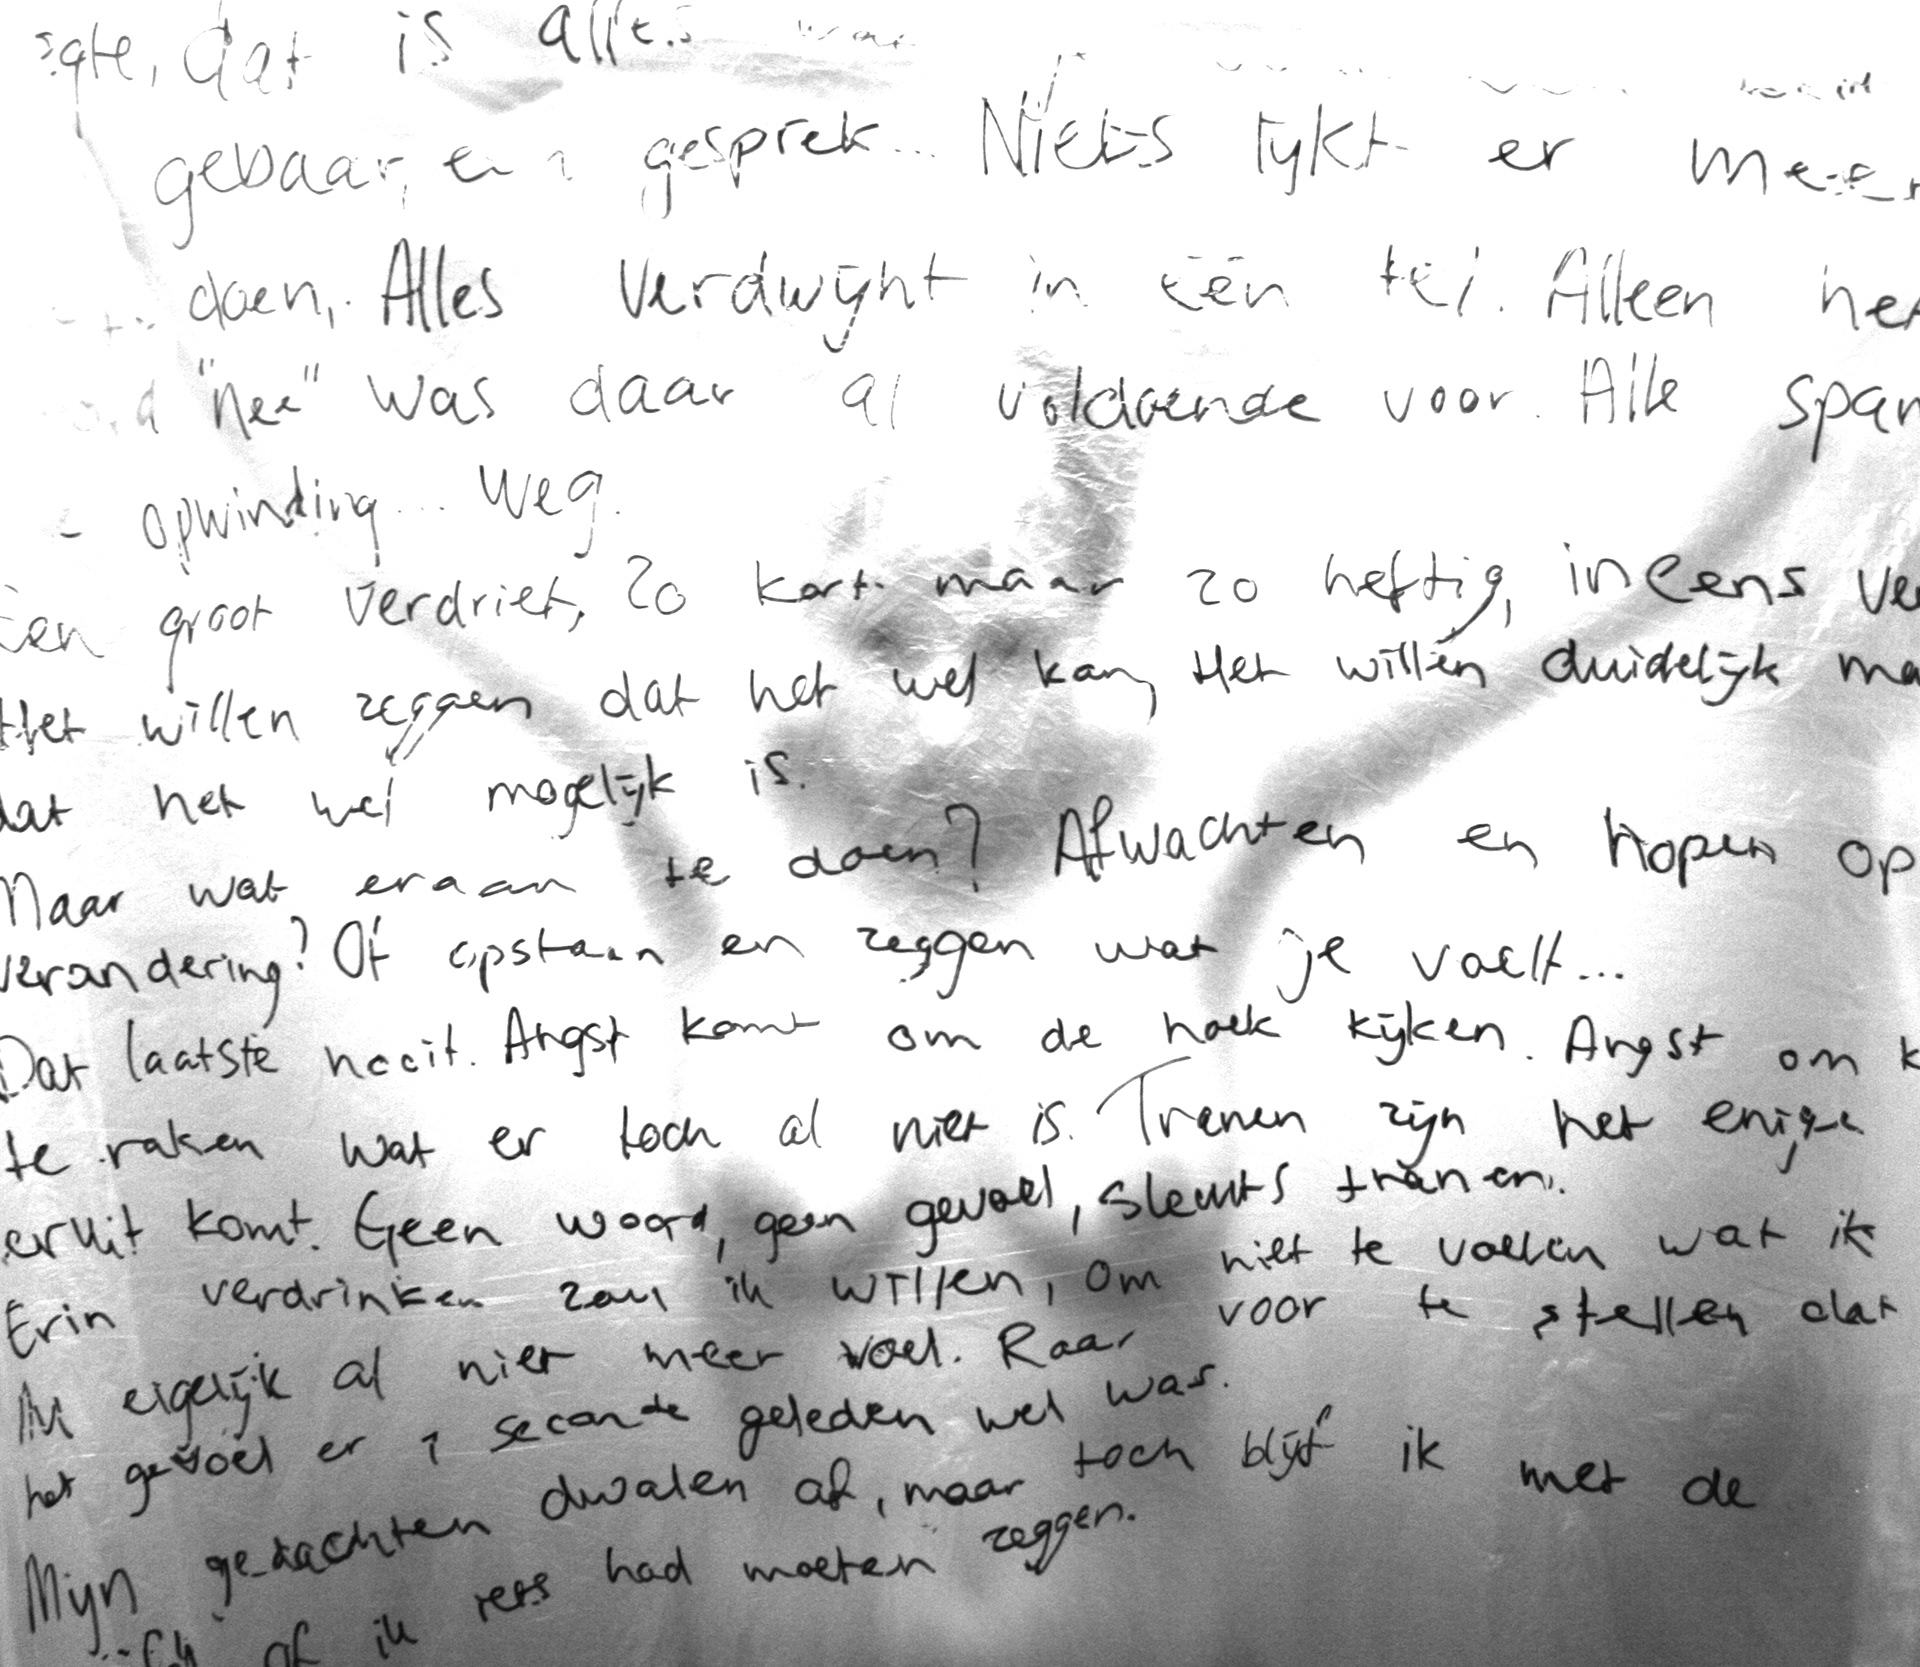 dat is alles
gebaar, gesprek... Niets lijkt er meer
doen,. Alles verdwijnt in één tel. Alleen het
"nee" was daar al voldoende voor. Alle span
opwinding... Weg.
Een groot verdriet, zo kort maar zo heftig, ineens ver
Het willen zeggen dat het wel kan, Het willen duidelijk ma
dat het wel mogelijk is.
Maar wat eraan te doen? Afwachten en hopen op
verandering? Of opstaan en zeggen wat je voelt...
Dat laatste nooit. Angst komt om de hoek kijken. Angst om k
te raken wat er toch al niet is. Tranen zijn het enige
eruit komt. Geen woord, geen gevoel, slechts tranen.
Erin verdrinken zou ik willen, om niet te voelen wat ik
nu eigelijk al niet meer voel. Raar voor te stellen dat
het gevoel er 1 seconde geleden wel was.
Mijn gedachten dwalen af, maar toch blijf ik met de
of ik iets had moeten zeggen.